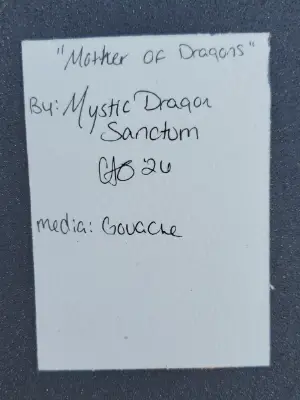 "Mother of Dragons"
By: Mystic Dragon
Sanctum
26
media: Gouache